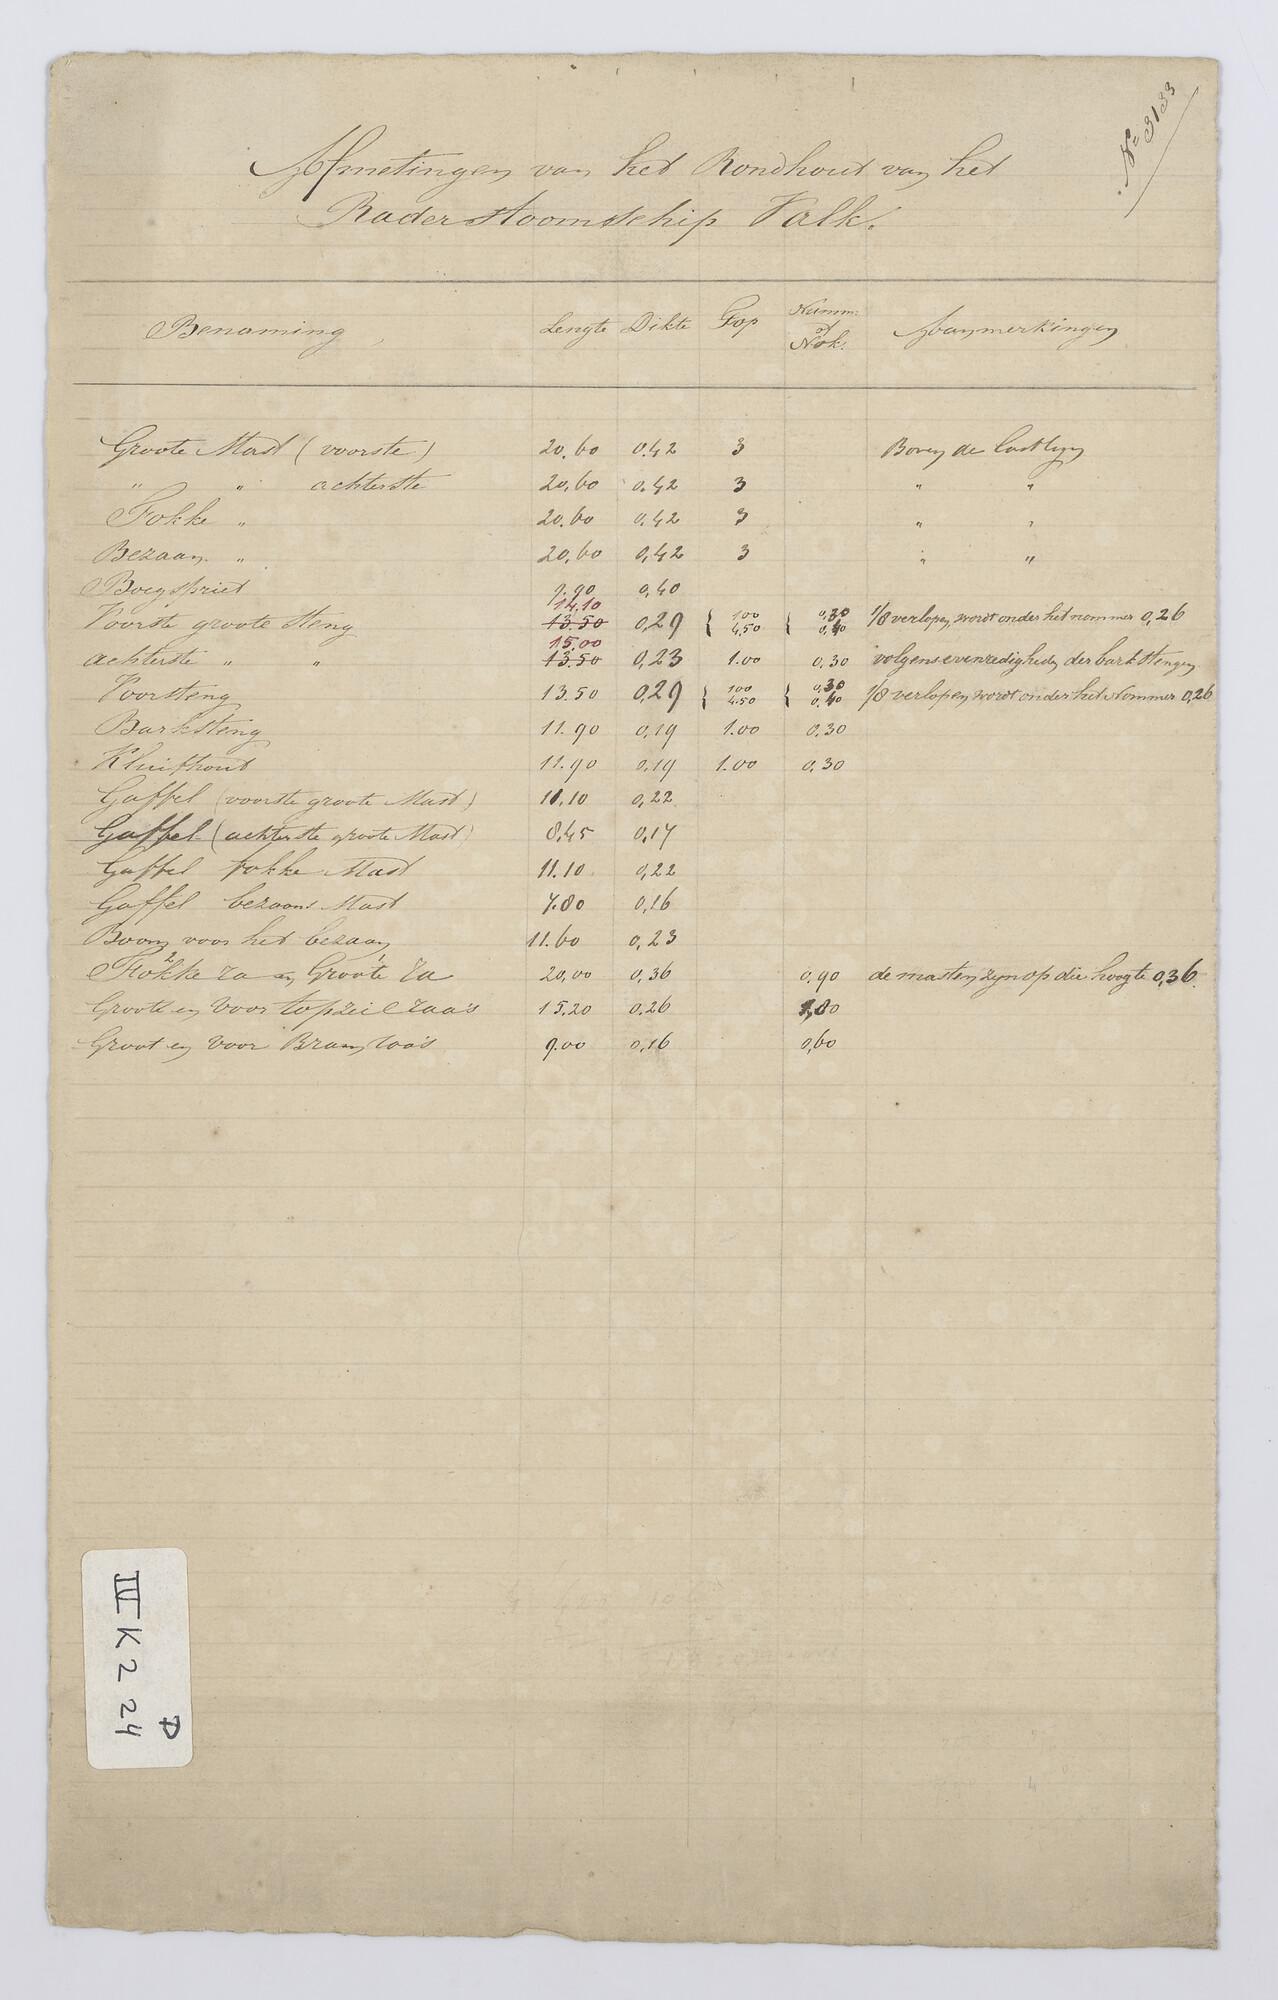 No 3133
Afmetingen van het Rondhout van het
Raderstoomschip Valk.
Benaming Lengte Dikte Top Numm: of Nok. Aanmerkingen
Groote Mast (voorste) 20.60 0.42 3 Boven de
" " achterste 20.60 0.42 3 " "
Fokke " 20.60 0.42 3 " "
Bezaan " 20.60 0.42 3 " "
Boegspriet 9.90 0.40
Voorste groote Steng 14.10 13.50 0.29 { 1.00 4.50 { 0.30 0.40 1/8 verlopen, wordt onder het nommer 0,26
achterste " " 15.00 13.50 0.23 1.00 0.30 volgens evenredigheden der barkstengen
Voorsteng 13.50 0.29 { 1.00 4.50 { 0.30 0.40 1/8 verlopen, wordt onder het Nommer 0,26
Barksteng 11.90 0.19 1.00 0.30
Kluifhout 11.90 0.19 1.00 0.30
Gaffel (voorste groote Mast) 11.10 0.22
Gaffel (achterste groote Mast) 8.45 0.17
Gaffel fokke Mast 11.10 0,22
Gaffel bezaans Mast 7.80 0,16
Boom voor het bezaan 11.60 0,23
Fokke ra en Groote ra 20,00 0,36 0,90 de masten zijn op die hoogte 0,36.
Groote en Voor topzeil raa's 15.20 0.26 1,80
Groot en Voor Bram raa's 9.00 0,16 0,60
III K 2 24
D